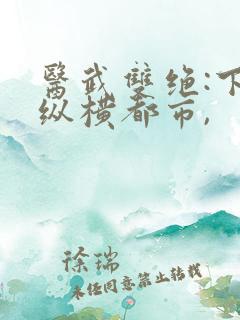 醫武雙绝:下
纵横都市,
徐瑞
未经同意禁止转载